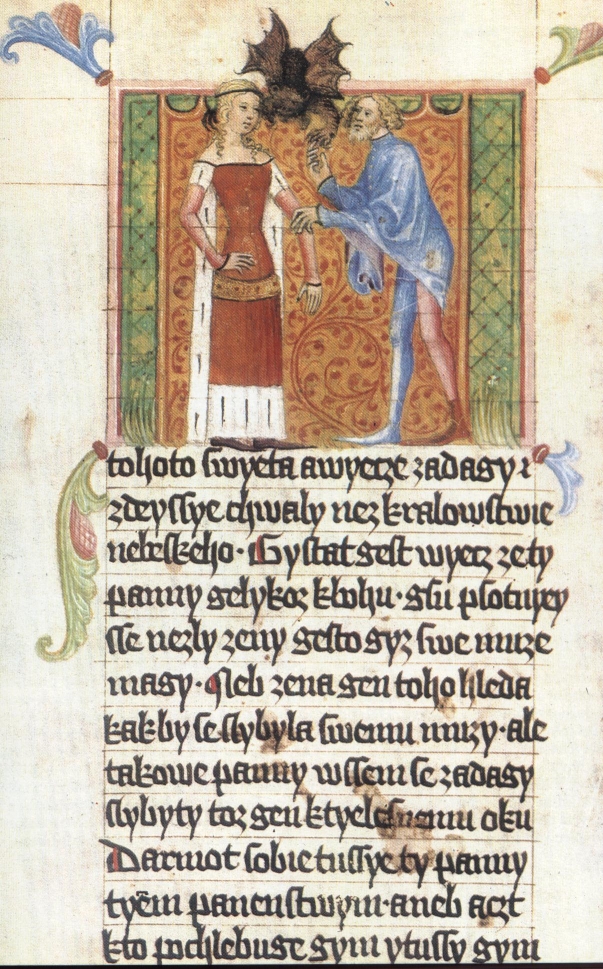 tohoto swyeta a wyecze zadagy i
zdeyssye chwaly nez kralowstwie
nebeskeho · Gystat gest wyecz ze ty
panny gelykoz kbohu · gsu psotnyey
sse nezly zeny gesto gyz swe muze
magy · Neb zena gen toho hleda
kakby se slybyla swemu muzy · ale
takowe panny wssem se zadagy
slybyty toz gen ktyelesnemu oku
Darmot sobie tussye ty panny
tyēm panenstwym · aneb aczt
kto pochlebuge gym ytussy gym